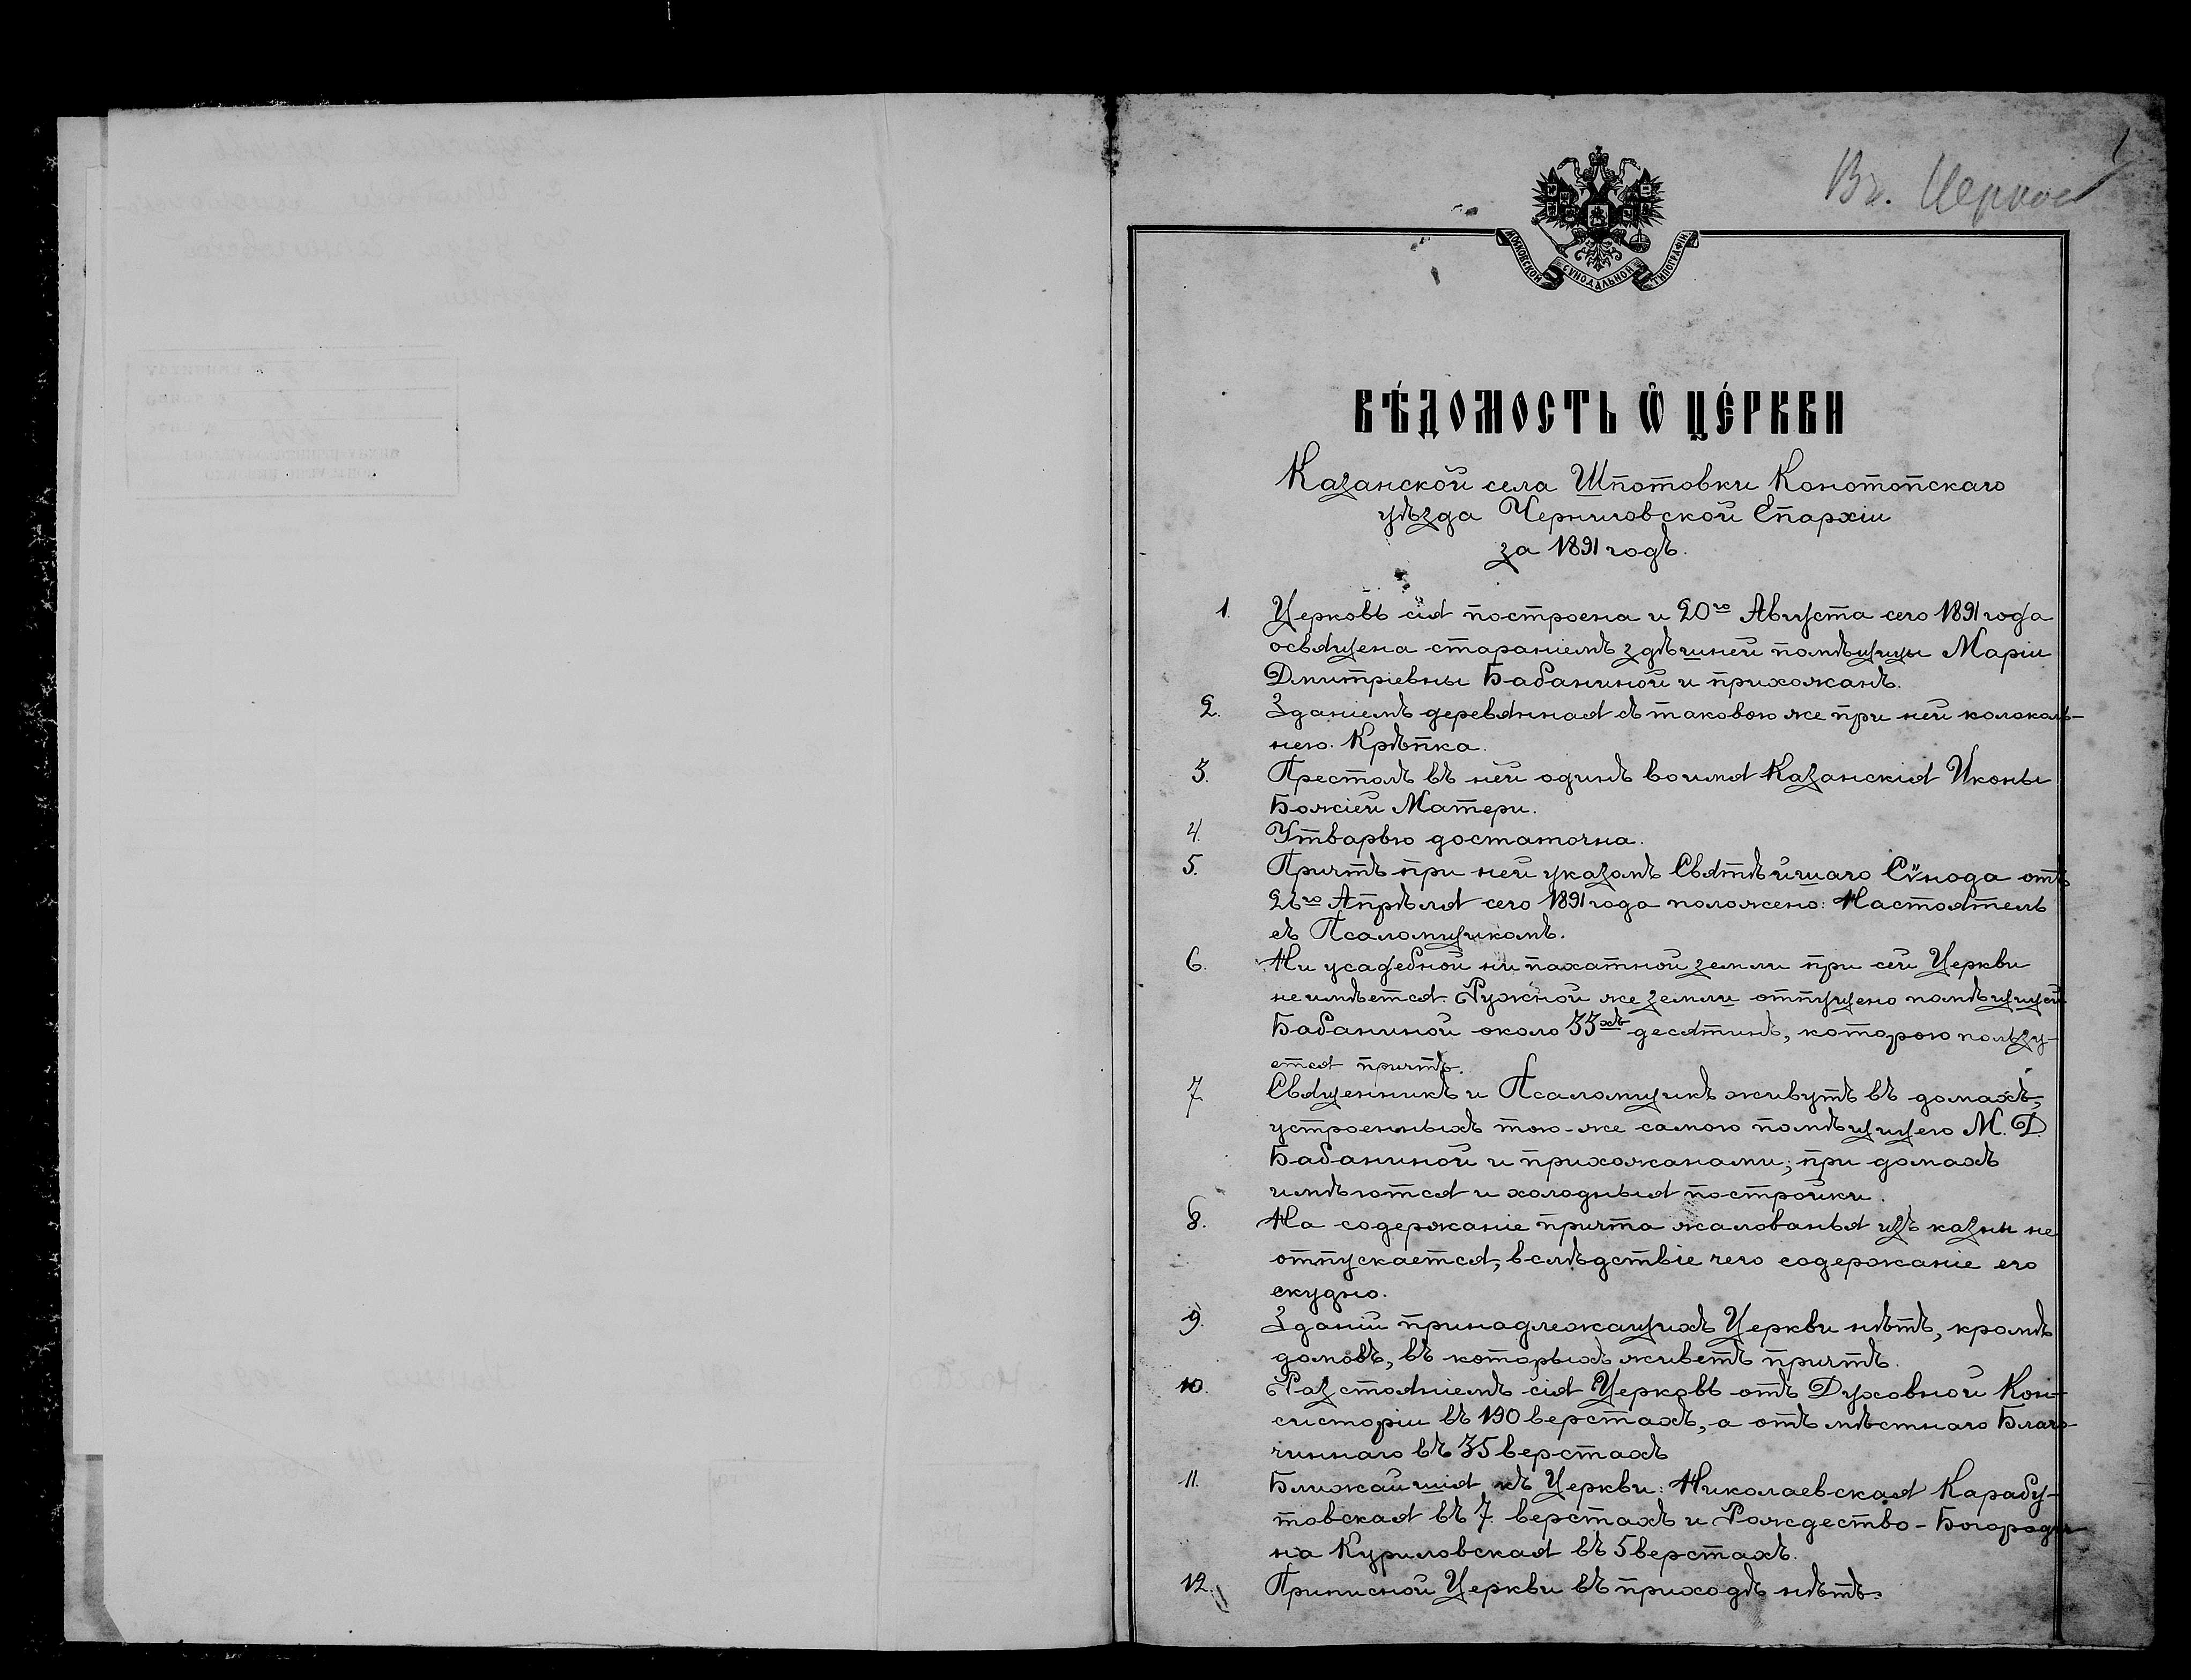 Въ. Церков
1
МОСКОВСКОЙ СѴНОДАЛЬНОЙ ТИПОГРАФІИ.
ВѢ́ДОМОСТЬ Ѽ ЦЕ́РКВИ
Казанской села Шпотовки Конотопскаго
уѣзда Черниговской Епархіи
за 1891 годъ.
1. Церковь сія построена и 20го Августа сего 1891 года
освящена стараніемъ здѣшней помѣщицы Маріи
Дмитріевны Бабаниной и прихожанъ.
2. Зданіемъ деревянная съ таковою же при ней колоколь-
нею. Крѣпка.
3. Престолъ въ ней одинъ во имя Казанскія Иконы
Божіей Матери.
4. Утварью достаточна.
5. Причтъ при ней указомъ Святѣйшаго Сѵнода отъ
26го Апрѣля сего 1891 года положено: Настоятель
съ Псаломщикомъ.
6. Ни усадебной ни пахатной земли при сей Церкви
не имѣется. Ружной же земли отпущено помѣщицей
Бабаниной около 33хъ десятинъ, которою пользу-
ется причтъ.
7 Священникъ и Псаломщикъ живутъ въ домахъ,
устроенныхъ тою-же самою помѣщицею М. Д.
Бабаниной и прихожанами; при домахъ
имѣются и холодныя постройки.
8. На содержаніе причта жалованья изъ казны не
отпускается, вслѣдствіе чего содержаніе его
скудно.
9. Зданій принадлежащихъ Церкви нѣтъ, кромѣ
домовъ, въ которыхъ живетъ причтъ.
10. Разстояніемъ сія Церковь отъ Духовной Кон-
систоріи въ 190 верстахъ, а отъ мѣстнаго Благо-
чиннаго въ 35 верстахъ
11. Ближайшія къ Церкви: Николаевская Карабу-
товская въ 7. верстахъ и Рождество-Богороди-
на Куриловская въ 5 верстахъ.
12. Приписной Церкви въ приходѣ нѣтъ.